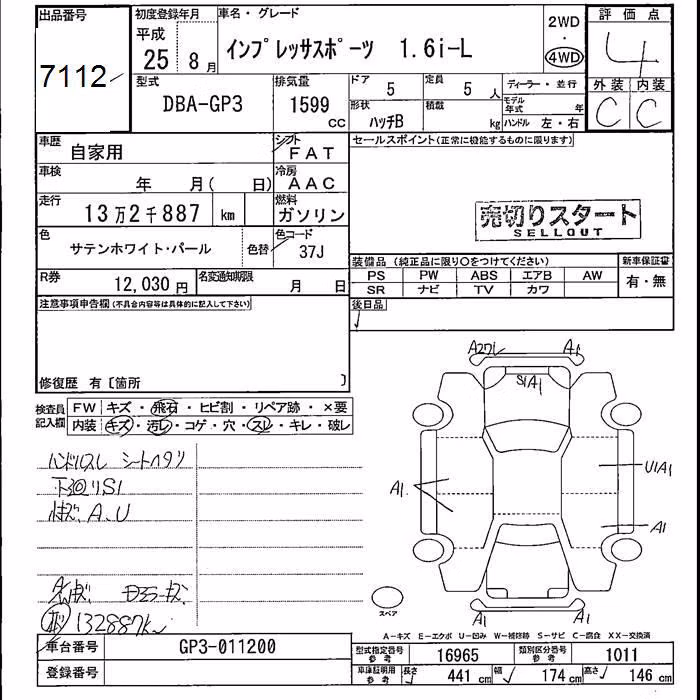 出品番号 初度登録年月 車名・グレード 2WD 評価点
7112 平成 25 8月 インプレッサスポーツ 1.6i-L 4WD 4
型式 排気量 ドア 5 定員 5人 ディーラー・並行 外装 内装
DBA-GP3 1599 CC 形状 ハッチB 積載 kg モデル年式 年 C C
ハンドル 左・右
車歴 自家用 シフト FAT セールスポイント(正常に機能するものに限ります)
車検 年 月( 日) 冷房 AAC
走行 13万2千887 km 燃料 ガソリン
売切りスタート
SELLOUT
色 サテンホワイト・パール 色替 色コード 37J
装備品 (純正品に限り○をつけてください) 新車保証書
PS PW ABS エアB AW 有・無
SR ナビ TV カワ
R券 12,030円 名変通知期限 月 日
注意事項申告欄(不具合内容等は具体的に記入して下さい) 後日品
修復歴 有〔箇所 〕
検査員記入欄 FW キズ・飛石・ヒビ割・リペア跡・×要
内装 キズ・汚レ・コゲ・穴・スレ・キレ・破レ
ハンドルスレ シートヘタリ
下廻りS1
キズ、A、U
132887k
A1
S1A1
A1
U1A1
A1
A1
A1
スペア
A-キズ E-エクボ U-凹み W-補修跡 S-サビ C-腐食 XX-交換済
車台番号 GP3-011200
登録番号
型式指定番号 参考 16965 類別区分番号 参考 1011
車庫証明用 参考 長さ 441cm 幅 174cm 高さ 146cm